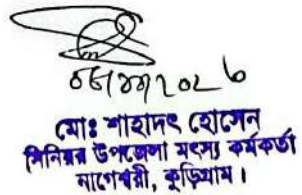 ০৮/০১/২০২৬
মোঃ শাহাদৎ হোসেন
সিনিয়র উপজেলা মৎস্য কর্মকর্তা
নাগেশ্বরী, কুড়িগ্রাম।